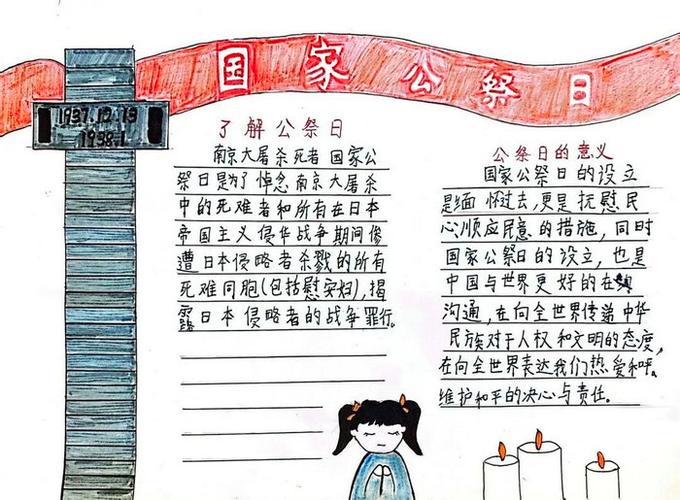 国家公祭日
1937.12.13
1938.1
了解公祭日
南京大屠杀死者 国家公
祭日是为了悼念南京大屠杀
中的死难者和所有在日本
帝国主义侵华战争期间惨
遭日本侵略者杀戮的所有
死难同胞(包括慰安妇),揭
露日本侵略者的战争罪行。
公祭日的意义
国家公祭日的设立
是缅怀过去,更是抚慰民
心顺应民意的措施,同时
国家公祭日的设立,也是
中国与世界更好的在
沟通,在向全世界传递中华
民族对于人权和文明的态度,
在向全世界表达我们热爱和呼
维护和平的决心与责任。